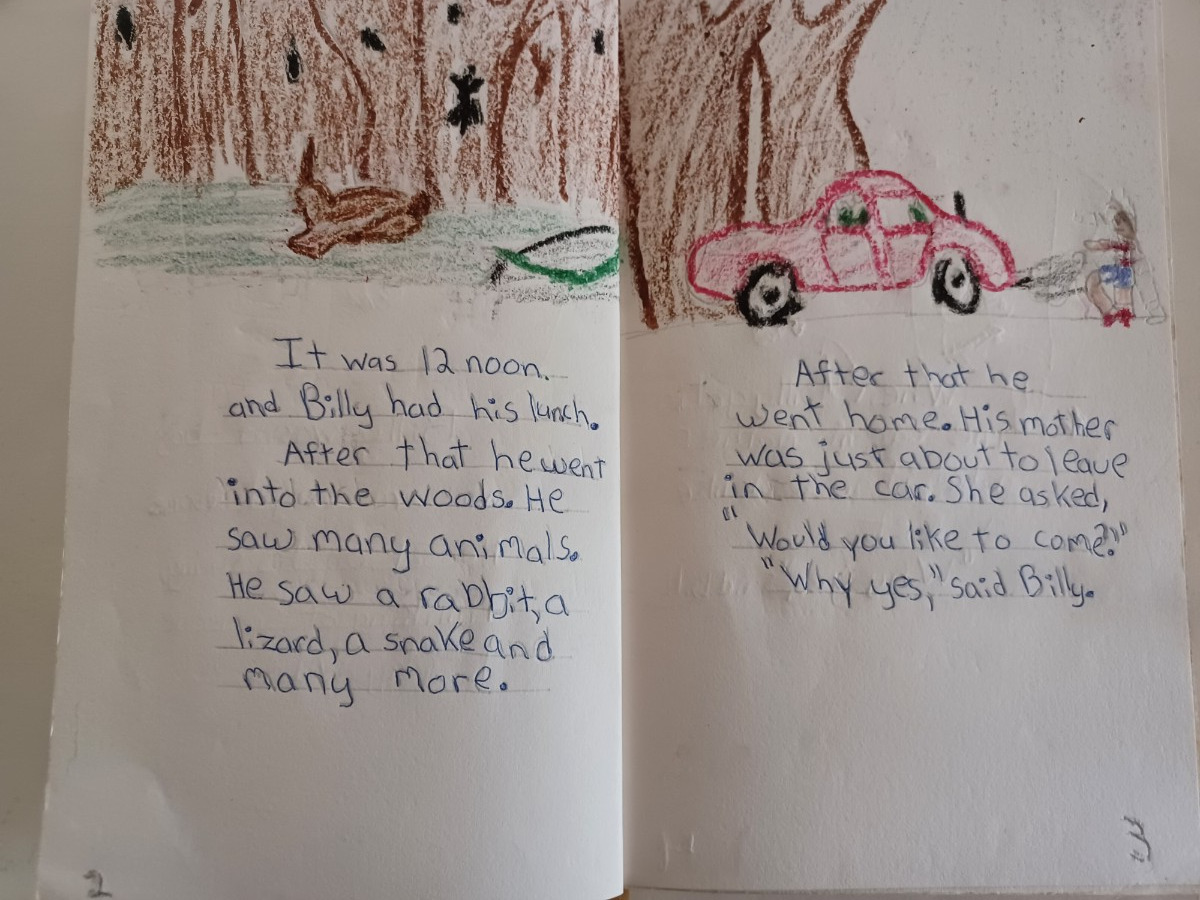 It was 12 noon.
and Billy had his lunch.
After that he went
into the woods. He
saw many animals.
He saw a rabbit, a
lizard, a snake and
many more.
2
After that he
went home. His mother
was just about to leave
in the car. She asked,
"Would you like to come?"
"Why yes," said Billy.
3